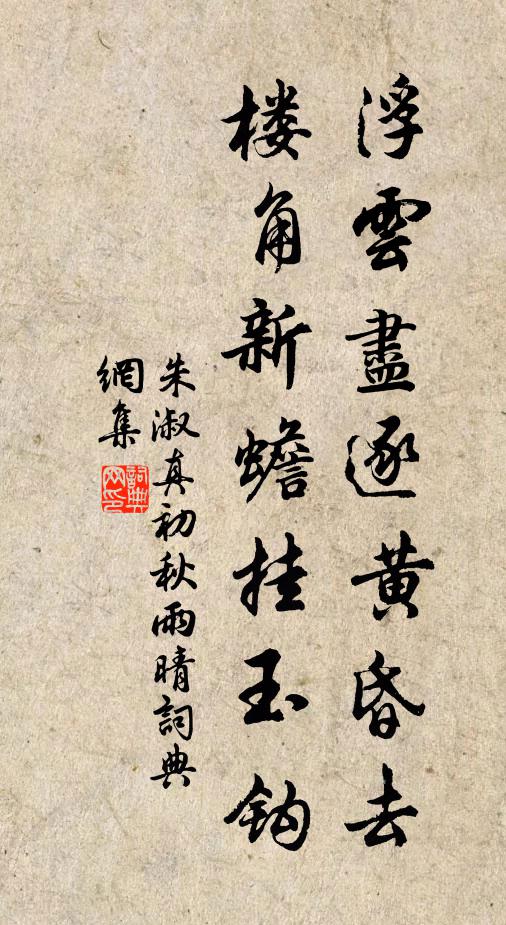 浮雲盡逐黄昏去
楼角新蟾挂玉鈎
朱淑真初秋雨晴詞典
網集
詞典
网印